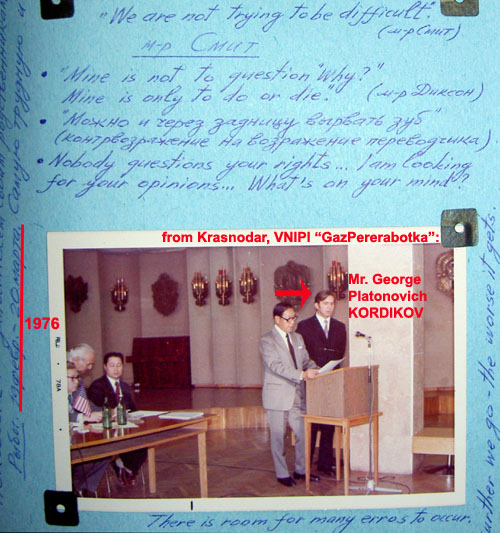 "We are not trying to be difficult".
(м-р Смит)
м-р Смит
• "Mine is not to question "Why?"
Mine is only to do or die". (м-р Диксон)
• "Можно и через задницу вырвать зуб"
(контрвозражение на возражение переводчика).
• Nobody questions your rights... I am looking
for your opinions... What's on your mind?
from Krasnodar, VNIPI “GazPererabotka”:
Mr. George
Platonovich
KORDIKOV
1976
There is room for many erros to occur.
urther we go - the worse it gets.
20 марта. Самую трудную и